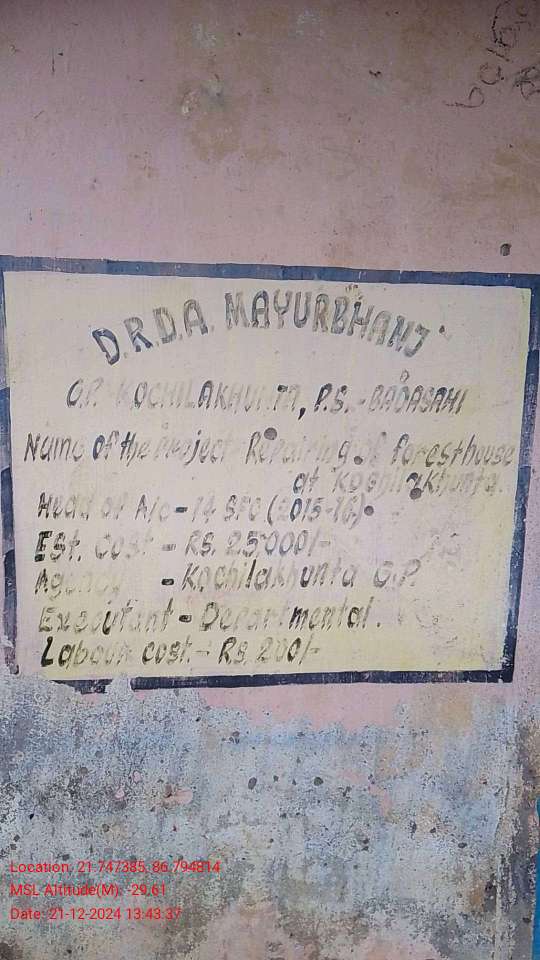 D.R.D.A. MAYURBHANJ
G.P. KOCHILAKHUNTA, P.S. - BADASAHI
Name of the Project Repairing of foresthouse
at Kochilakhunta.
Head of A/c - 14 SFC (2015-16)
Est. Cost - Rs. 25,000/-
Agency - Kochilakhunta G.P.
Executant - Departmental.
Labour cost. - Rs 200/-
Location: 21.747385, 86.794814
MSL Altitude(M): -29.61
Date: 21-12-2024 13:43:37